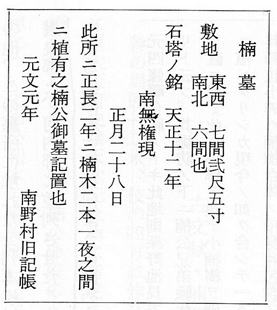 楠墓
敷地 東西 七間弐尺五寸
南北 六間也
石塔ノ銘 天正十二年
南無権現
正月二十八日
此所ニ正長二年ニ楠木二本一夜之間
ニ植有之楠公御墓記置也
元文元年 南野村旧記帳